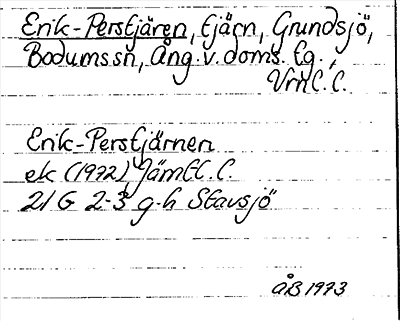 Erik-Perstjären, tjärn, Grundsjö,
Bodumssn, Ång. v. doms. tg.,
Vrnl. C.
Erik-Perstjärnen
ek (1972) Jämtl. C.
21 G 2-3 g-h Stavsjö
ÅB 1973